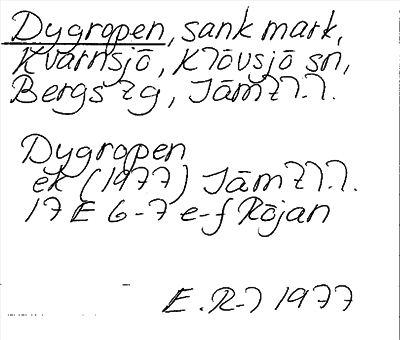 Dygropen, sank mark,
Kvarnsjö, Klövsjö sn,
Bergs tg, Jämtl.l.
Dygropen
ek (1977) Jämtl.l.
17 E 6-7 e-f Röjan
E.R-l 1977